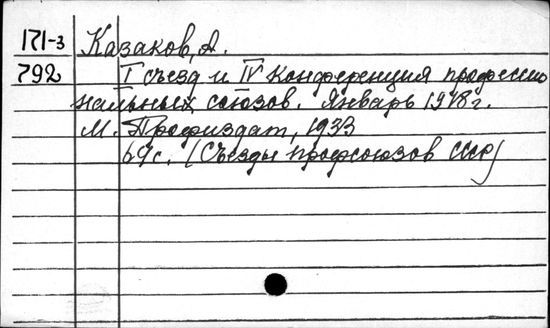 171-3 Казаков, А.
792 I съезд и IV конференция профессио
нальных союзов. Январь 1918 г.
М. Профиздат, 1933
69 с. (Съезды профсоюзов СССР)